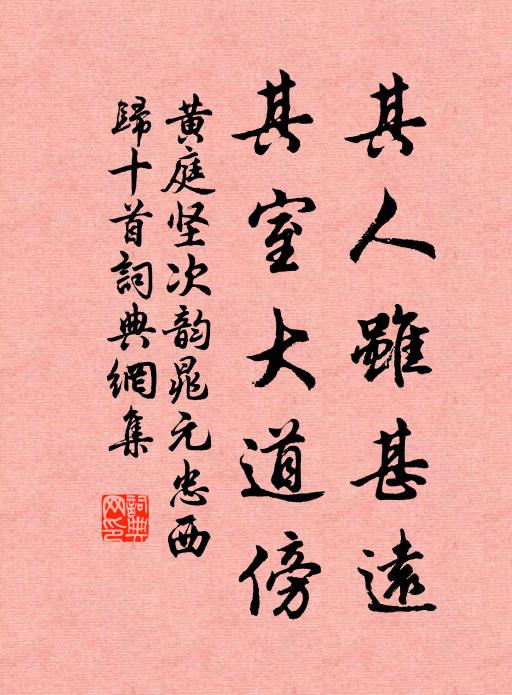 其人雖甚遠
其室大道傍
黄庭坚次韵晁元忠西
歸十首詞典網集
詞典網印